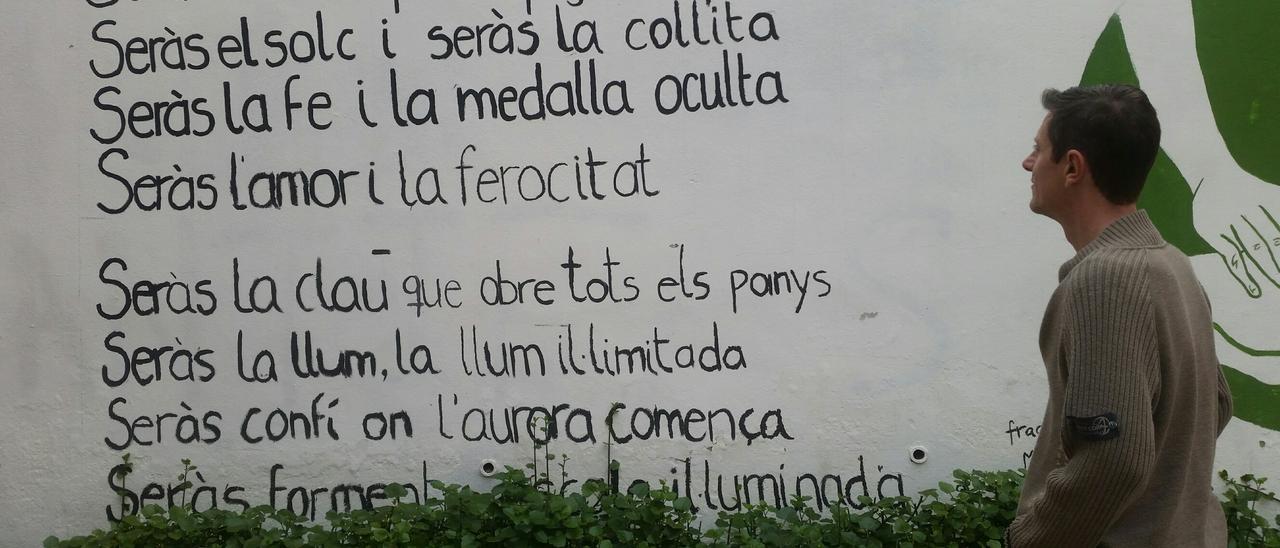 Seràs el solc i seràs la collita
Seràs la fe i la medalla oculta
Seràs l'amor i la ferocitat
Seràs la clau que obre tots els panys
Seràs la llum, la llum il·limitada
Seràs confí on l'aurora comença
Seràs forment il·luminada
frag